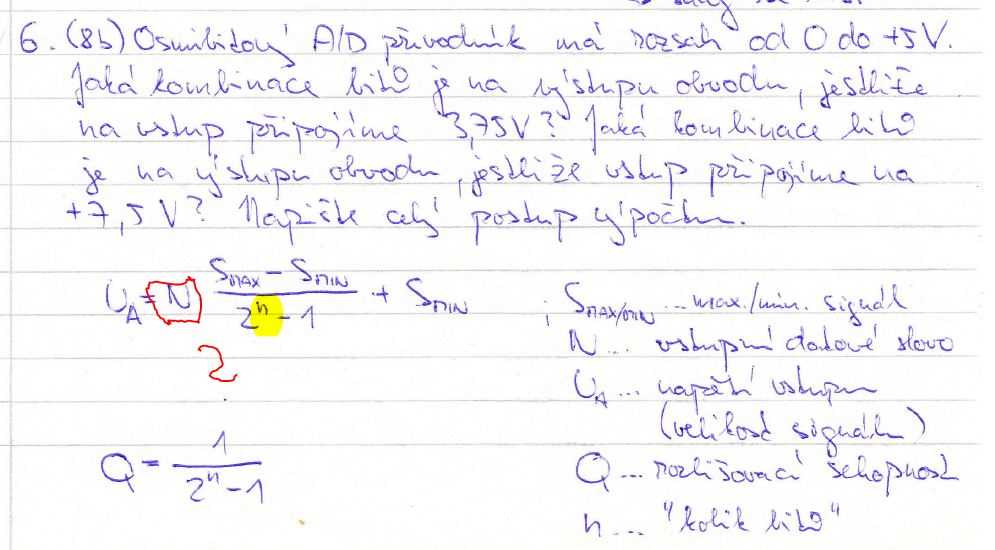 6. (8b) Osmibitový A/D převodník má rozsah od 0 do +5V.
Jaká kombinace bitů je na výstupu obvodu, jestliže
na vstup připojíme 3,75V? Jaká kombinace bitů
je na výstupu obvodu, jestliže vstup připojíme na
+7,5V? Napište celý postup výpočtu.
U_A = N (S_MAX - S_MIN) / (2^n - 1) + S_MIN ; S_MAX/MIN ... max./min. signál
N ... vstupní datové slovo
2
U_A ... napětí vstupu
(velikost signálu)
Q = 1 / (2^n - 1) Q ... rozlišovací schopnost
n ... "kolik bitů"